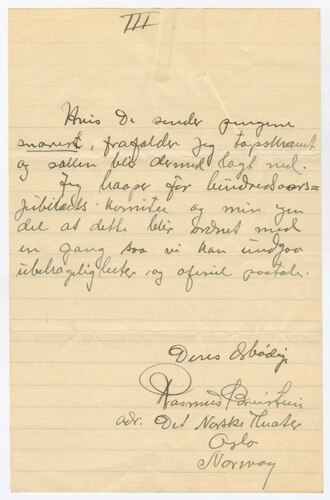 III
Hvis De sender pengene
snarest, frafalder jeg tapskravet
og saken blir dermed lagt ned.
Jeg haaper for hundredeaars=
jubilæets komite og min egen
del at dette blir ordnet med
en gang saa vi kan undgaa
ubehageligheter og
Deres ærbødige
Rasmus Breistein
adr. Det Norske Theater
Oslo
Norway